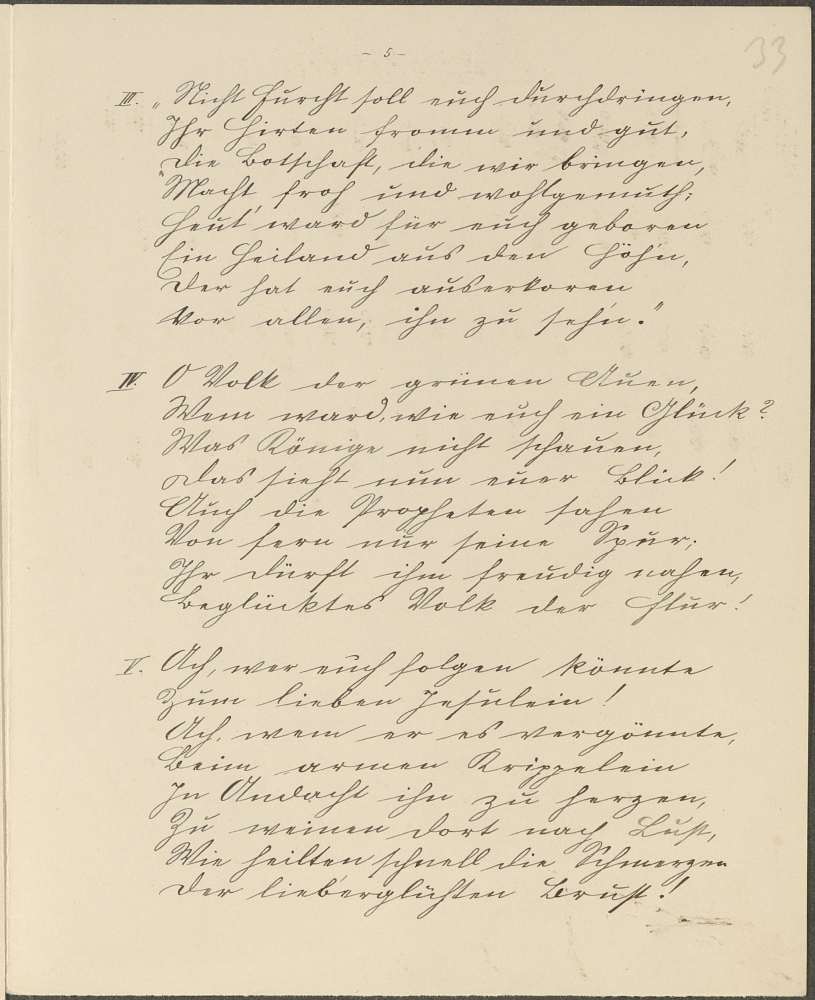 - 5 -
33
III. „Nicht Furcht soll euch durchdringen,
Ihr Hirten fromm und gut,
„Die Botschaft, die wir bringen,
Macht froh und wohlgemuth;
Heut' ward für euch geboren
Ein Heiland aus den Höh'n,
Der hat euch auserkoren
Vor allen, ihn zu seh'n."
IV. O Volk der grünen Auen,
Wem ward, wie euch ein Glück?
Was Könige nicht schauen,
Das sieht nun euer Blick!
Auch die Propheten sahen
Von fern nur seine Spur;
Ihr dürft ihm freudig nahen,
Beglücktes Volk der Flur!
V. Ach, wer euch folgen könnte
Zum lieben Jesulein!
Ach, wem er es vergönnte,
Beim armen Krippelein
In Andacht ihn zu herzen,
Zu weinen dort nach Lust,
Wie heilten schnell die Schmerzen
Der lieberglühten Brust!